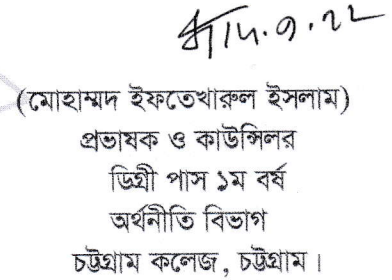 ১৮.৭.২২
(মোহাম্মদ ইফতেখারুল ইসলাম)
প্রভাষক ও কাউন্সিলর
ডিগ্রী পাস ১ম বর্ষ
অর্থনীতি বিভাগ
চট্টগ্রাম কলেজ, চট্টগ্রাম।